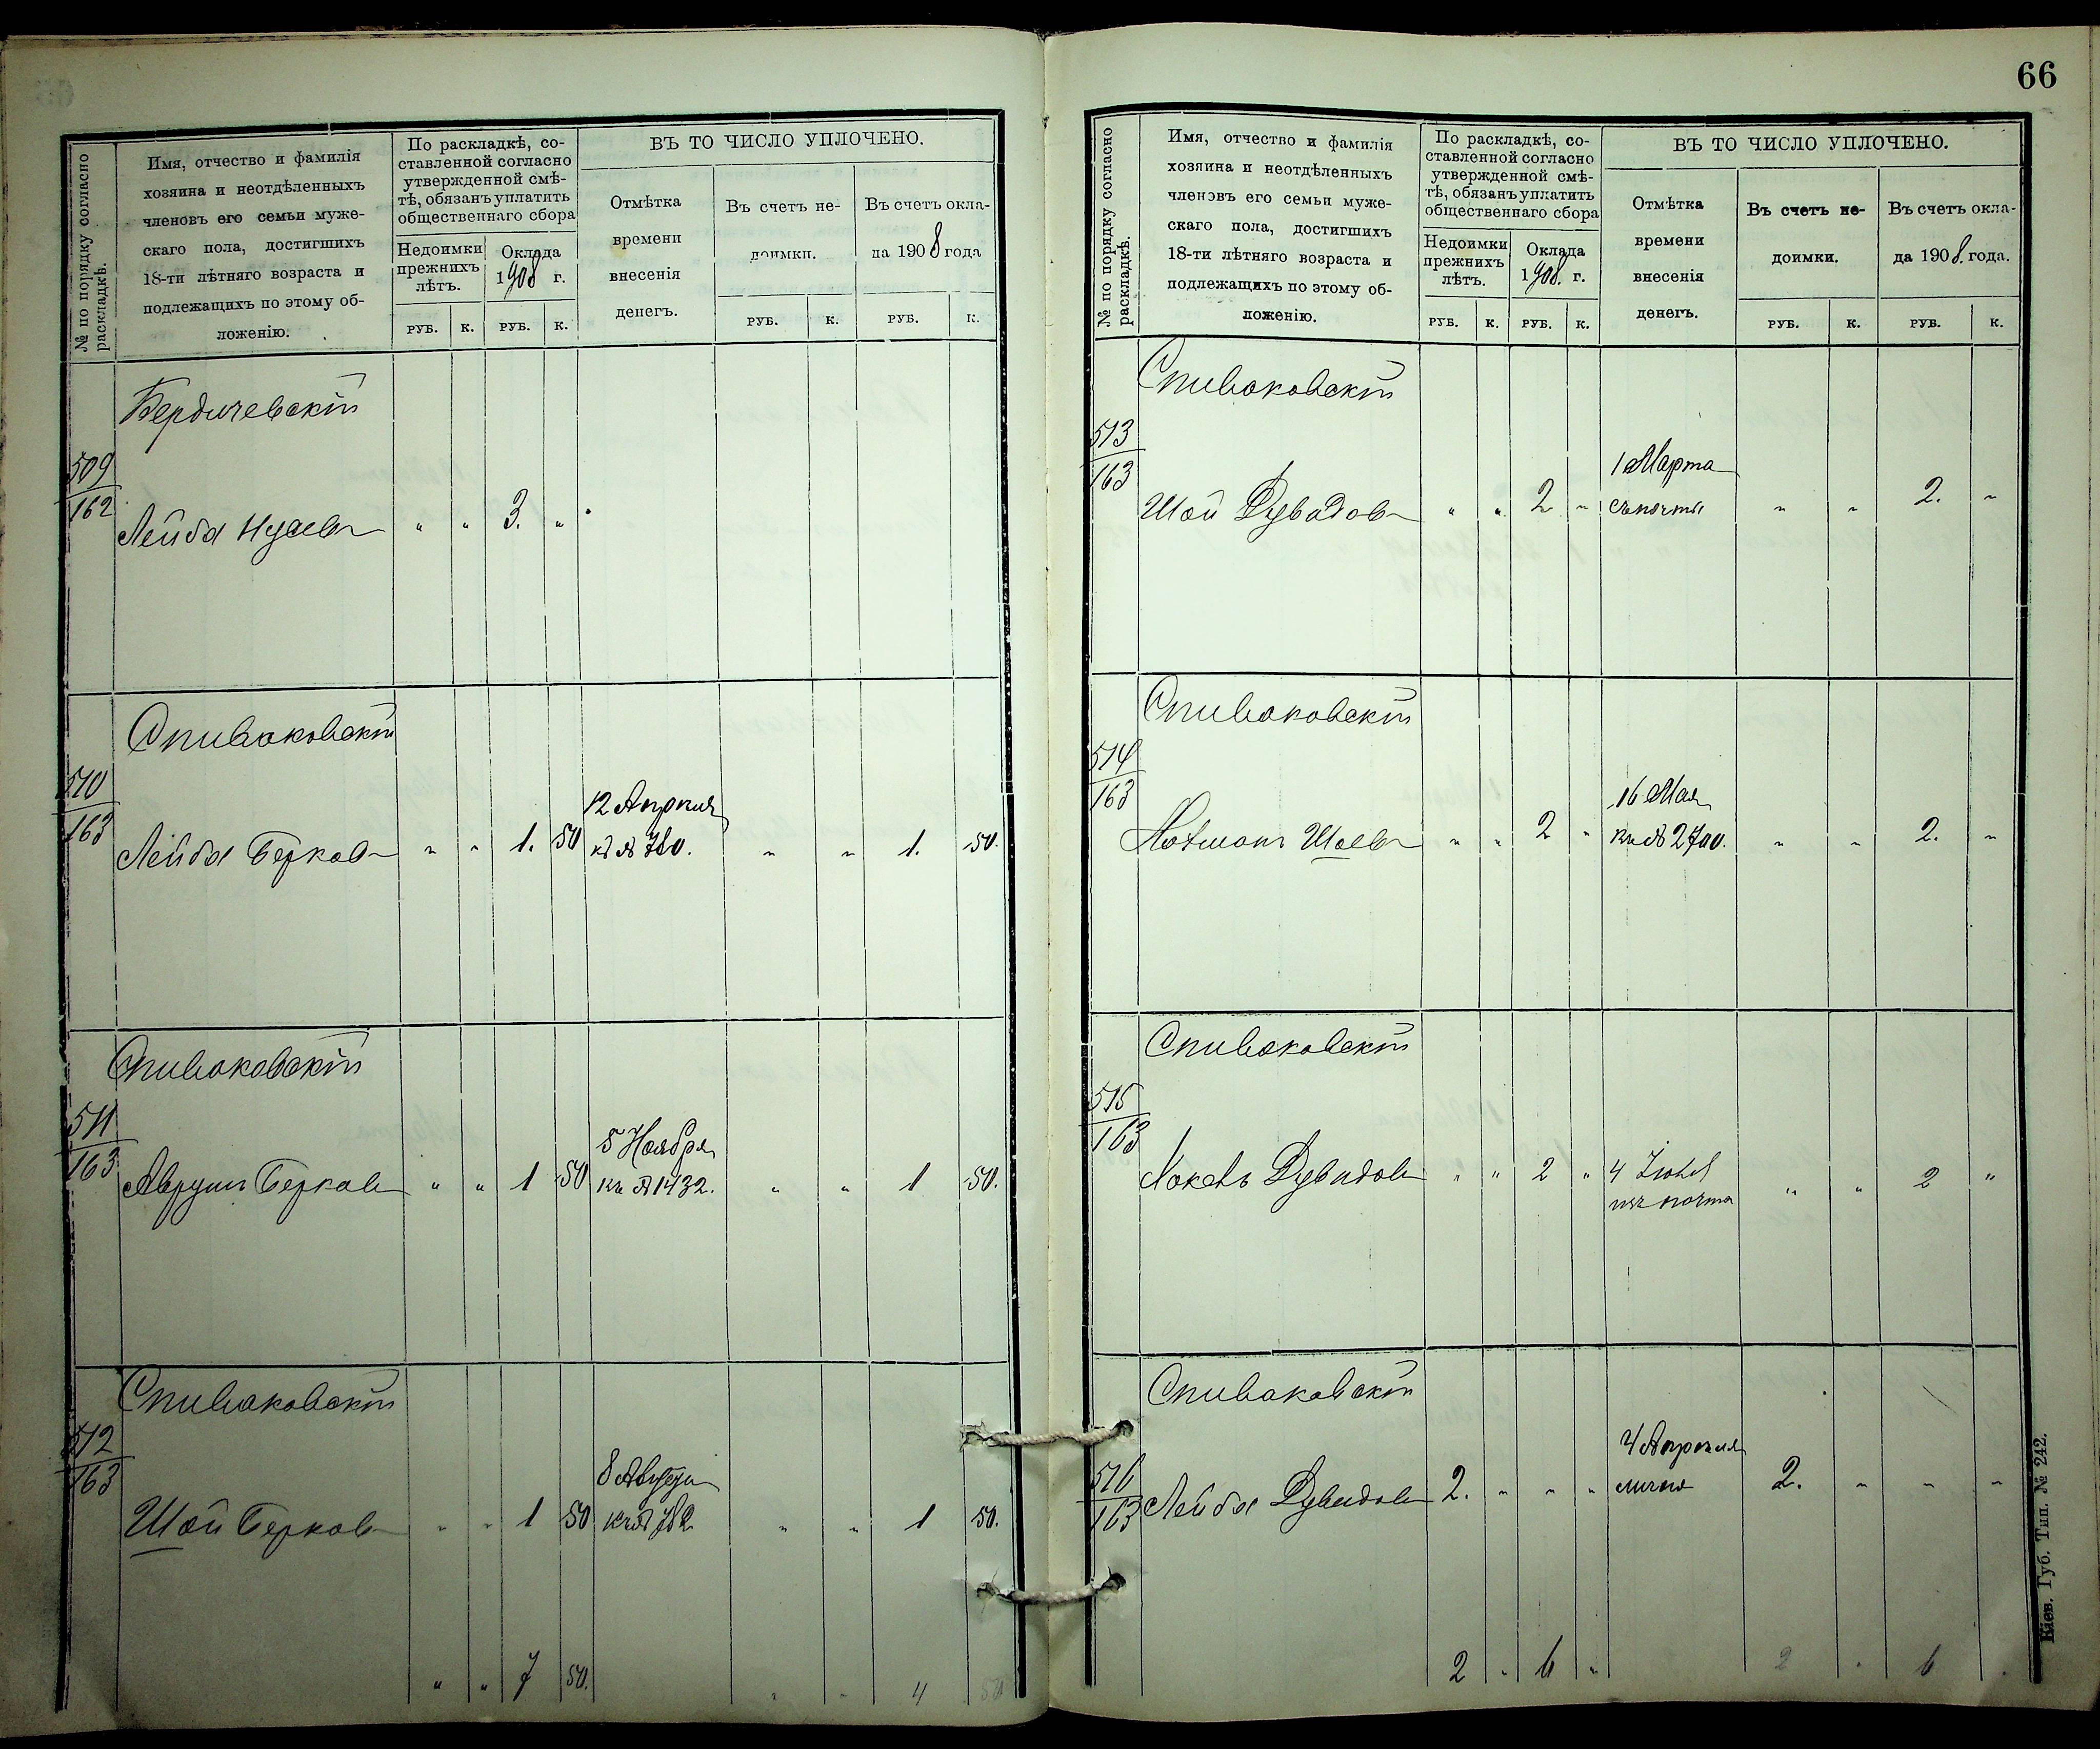 № по порядку согласно раскладкѣ.
Имя, отчество и фамилія
хозяина и неотдѣленныхъ
членовъ его семьи муже-
скаго пола, достигшихъ
18-ти лѣтняго возраста и
подлежащихъ по этому об-
ложенію.
По раскладкѣ, со-
ставленной согласно
утвержденной смѣ-
тѣ, обязанъ уплатить
общественнаго сбора
Недоимки
прежнихъ
лѣтъ.
Оклада
1908 г.
РУБ. К. РУБ. К.
ВЪ ТО ЧИСЛО УПЛОЧЕНО.
Отмѣтка
времени
внесенія
денегъ.
Въ счетъ не-
доимки.
РУБ. К.
Въ счетъ окла-
да 1908 года
РУБ. К.
Бердичевскій
509
162
Лейба " " 3. "
Спиваковскій
510
163
12 Апрѣля
Лейба Берковъ " " 1. 50 къ № 780. " " 1. 50.
Спиваковскій
511
163
5 Ноября
Аврумъ Берковъ " " 1 50 къ № 1432. " " 1 50.
Спиваковскій
512
163
8 Августа
Шой Берковъ " " 1 50 " " 1 50.
" " 7 50. " " 4 50
66
№ по порядку согласно раскладкѣ.
Имя, отчество и фамилія
хозяина и неотдѣленныхъ
членовъ его семьи муже-
скаго пола, достигшихъ
18-ти лѣтняго возраста и
подлежащихъ по этому об-
ложенію.
По раскладкѣ, со-
ставленной согласно
утвержденной смѣ-
тѣ, обязанъ уплатить
общественнаго сбора
Недоимки
прежнихъ
лѣтъ.
Оклада
1908. г.
РУБ. К. РУБ. К.
ВЪ ТО ЧИСЛО УПЛОЧЕНО.
Отмѣтка
времени
внесенія
денегъ.
Въ счетъ не-
доимки.
РУБ. К.
Въ счетъ окла-
да 1908. года.
РУБ. К.
Спиваковскій
513
163
1 Марта
Шой Дувидовъ " " 2 " съ почты " " 2. "
Спиваковскій
514
163
16 Мая
Шоевъ " " 2 " къ № 2700. " " 2. "
Спиваковскій
515
163
Дувидовъ " " 2 " 4 " " 2 "
Спиваковскій
516
163
4 Апрѣля
Лейба Дувидовъ 2. " " " лично 2. " " "
2 " 6 " 2 " 6 "
Кіев. Губ. Тип. № 242.